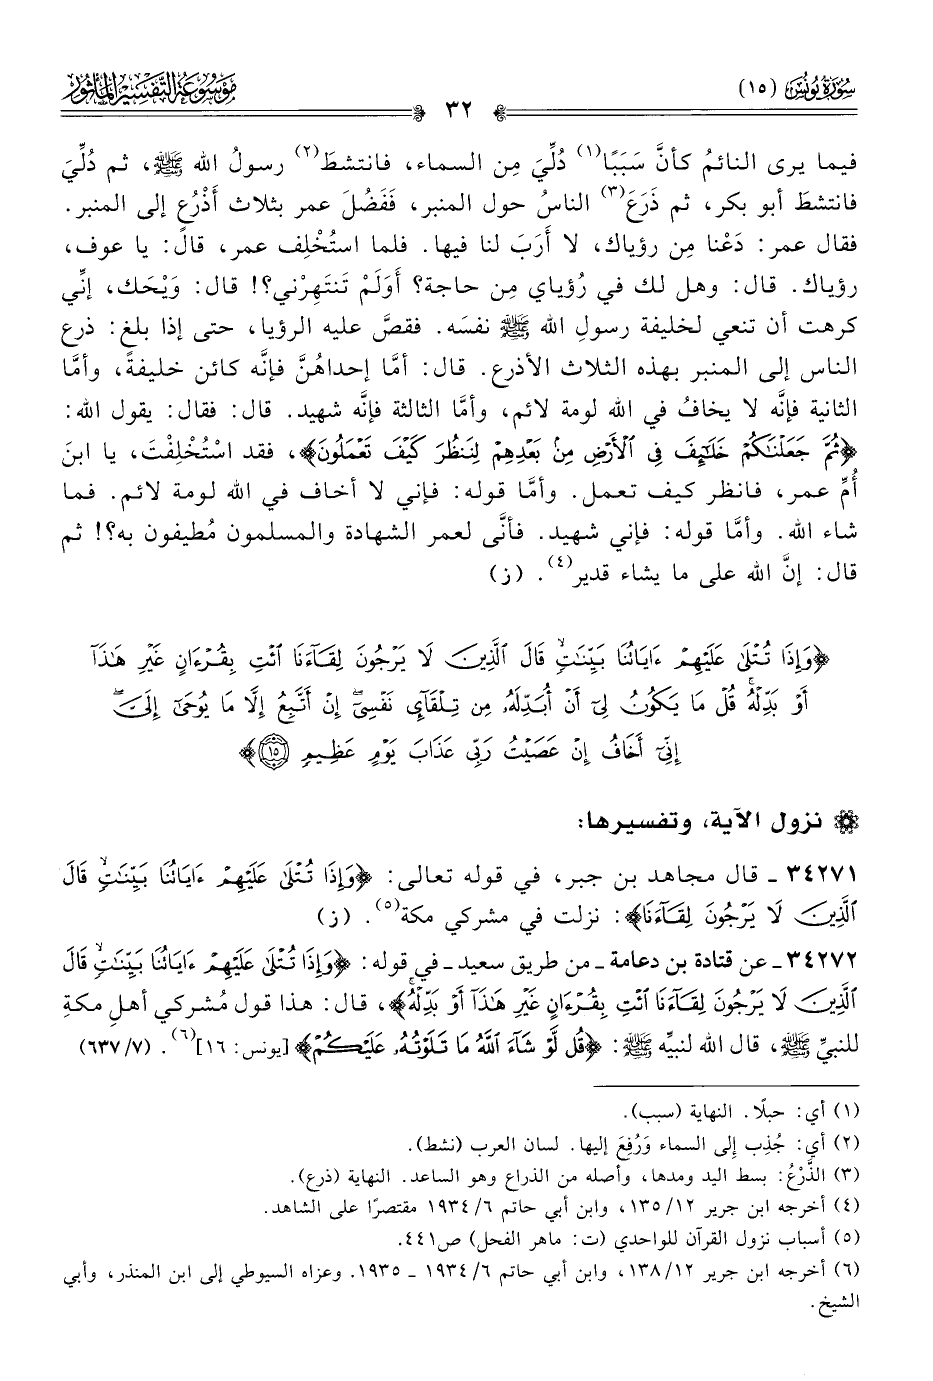 سُورَةُ يُونُسَ (١٥)
٣٢
مَوْسُوعَةُ التَّفْسِيْرِ المَأْثُورِ
فيما يرى النائمُ كأنَّ سَبَبًا(١) دُلِّيَ مِن السماء، فانتشطَ(٢) رسولُ الله ﷺ، ثم دُلِّيَ
فانتشطَ أبو بكر، ثم ذَرَعَ(٣) الناسُ حول المنبر، فَفَضُلَ عمر بثلاث أَذْرُعٍ إلى المنبر.
فقال عمر: دَعْنا مِن رؤياك، لا أَرَبَ لنا فيها. فلما استُخْلِف عمر، قال: يا عوف،
رؤياك. قال: وهل لك في رُؤياي مِن حاجة؟ أَوَلَمْ تَنتَهِرْني؟! قال: وَيْحَك، إنِّي
كرهت أن تنعي لخليفة رسولِ الله ﷺ نفسَه. فقصَّ عليه الرؤيا، حتى إذا بلغ: ذرع
الناس إلى المنبر بهذه الثلاث الأذرع. قال: أمَّا إحداهُنَّ فإنَّه كائن خليفةً، وأمَّا
الثانية فإنَّه لا يخافُ في الله لومة لائم، وأمَّا الثالثة فإنَّه شهيد. قال: فقال: يقول الله:
﴿ثُمَّ جَعَلْنَٰكُمْ خَلَٰٓئِفَ فِى ٱلْأَرْضِ مِنۢ بَعْدِهِمْ لِنَنظُرَ كَيْفَ تَعْمَلُونَ﴾، فقد اسْتُخْلِفْتَ، يا ابنَ
أُمِّ عمر، فانظر كيف تعمل. وأمَّا قوله: فإني لا أخاف في الله لومة لائم. فما
شاء الله. وأمَّا قوله: فإني شهيد. فأنَّى لعمر الشهادة والمسلمون مُطيفون به؟! ثم
قال: إنَّ الله على ما يشاء قدير(٤). (ز)
﴿وَإِذَا تُتْلَىٰ عَلَيْهِمْ ءَايَاتُنَا بَيِّنَٰتٍۙ قَالَ ٱلَّذِينَ لَا يَرْجُونَ لِقَآءَنَا ٱئْتِ بِقُرْءَانٍ غَيْرِ هَٰذَآ
أَوْ بَدِّلْهُۚ قُلْ مَا يَكُونُ لِىٓ أَنْ أُبَدِّلَهُۥ مِن تِلْقَآئِ نَفْسِىٓۖ إِنْ أَتَّبِعُ إِلَّا مَا يُوحَىٰٓ إِلَىَّۖ
إِنِّىٓ أَخَافُ إِنْ عَصَيْتُ رَبِّى عَذَابَ يَوْمٍ عَظِيمٍ ۝١٥﴾
نزول الآية، وتفسيرها:
٣٤٢٧١ ـ قال مجاهد بن جبر، في قوله تعالى: ﴿وَإِذَا تُتْلَىٰ عَلَيْهِمْ ءَايَاتُنَا بَيِّنَٰتٍۙ قَالَ
ٱلَّذِينَ لَا يَرْجُونَ لِقَآءَنَا﴾: نزلت في مشركي مكة(٥). (ز)
٣٤٢٧٢ ـ عن قتادة بن دعامة ـ من طريق سعيد ـ في قوله: ﴿وَإِذَا تُتْلَىٰ عَلَيْهِمْ ءَايَاتُنَا بَيِّنَٰتٍۙ قَالَ
ٱلَّذِينَ لَا يَرْجُونَ لِقَآءَنَا ٱئْتِ بِقُرْءَانٍ غَيْرِ هَٰذَآ أَوْ بَدِّلْهُۚ﴾، قال: هذا قول مُشركي أهلِ مكةِ
للنبيِّ ﷺ، قال الله لنبيِّه ﷺ: ﴿قُل لَّوْ شَآءَ ٱللَّهُ مَا تَلَوْتُهُۥ عَلَيْكُمْ﴾ [يونس: ١٦](٦). (٧/٦٣٧)
(١) أي: حبلًا. النهاية (سبب).
(٢) أي: جُذِب إلى السماء وَرُفِعَ إليها. لسان العرب (نشط).
(٣) الذَّرْعُ: بسط اليد ومدها، وأصله من الذراع وهو الساعد. النهاية (ذرع).
(٤) أخرجه ابن جرير ١٢/١٣٥، وابن أبي حاتم ٦/١٩٣٤ مقتصرًا على الشاهد.
(٥) أسباب نزول القرآن للواحدي (ت: ماهر الفحل) ص٤٤١.
(٦) أخرجه ابن جرير ١٢/١٣٨، وابن أبي حاتم ٦/١٩٣٤ ـ ١٩٣٥. وعزاه السيوطي إلى ابن المنذر، وأبي
الشيخ.